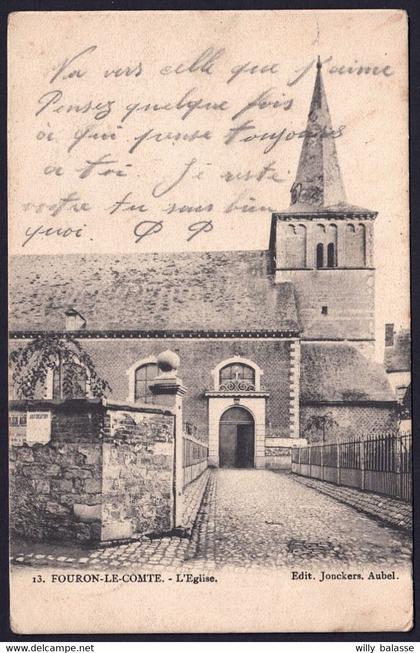 Va vers celle que j'aime
Pensez quelque fois
à qui pense toujours
a toi. Je reste
votre tu sais bien
quoi
13. FOURON-LE-COMTE. - L'Eglise.
Edit. Jonckers, Aubel.
willy balasse